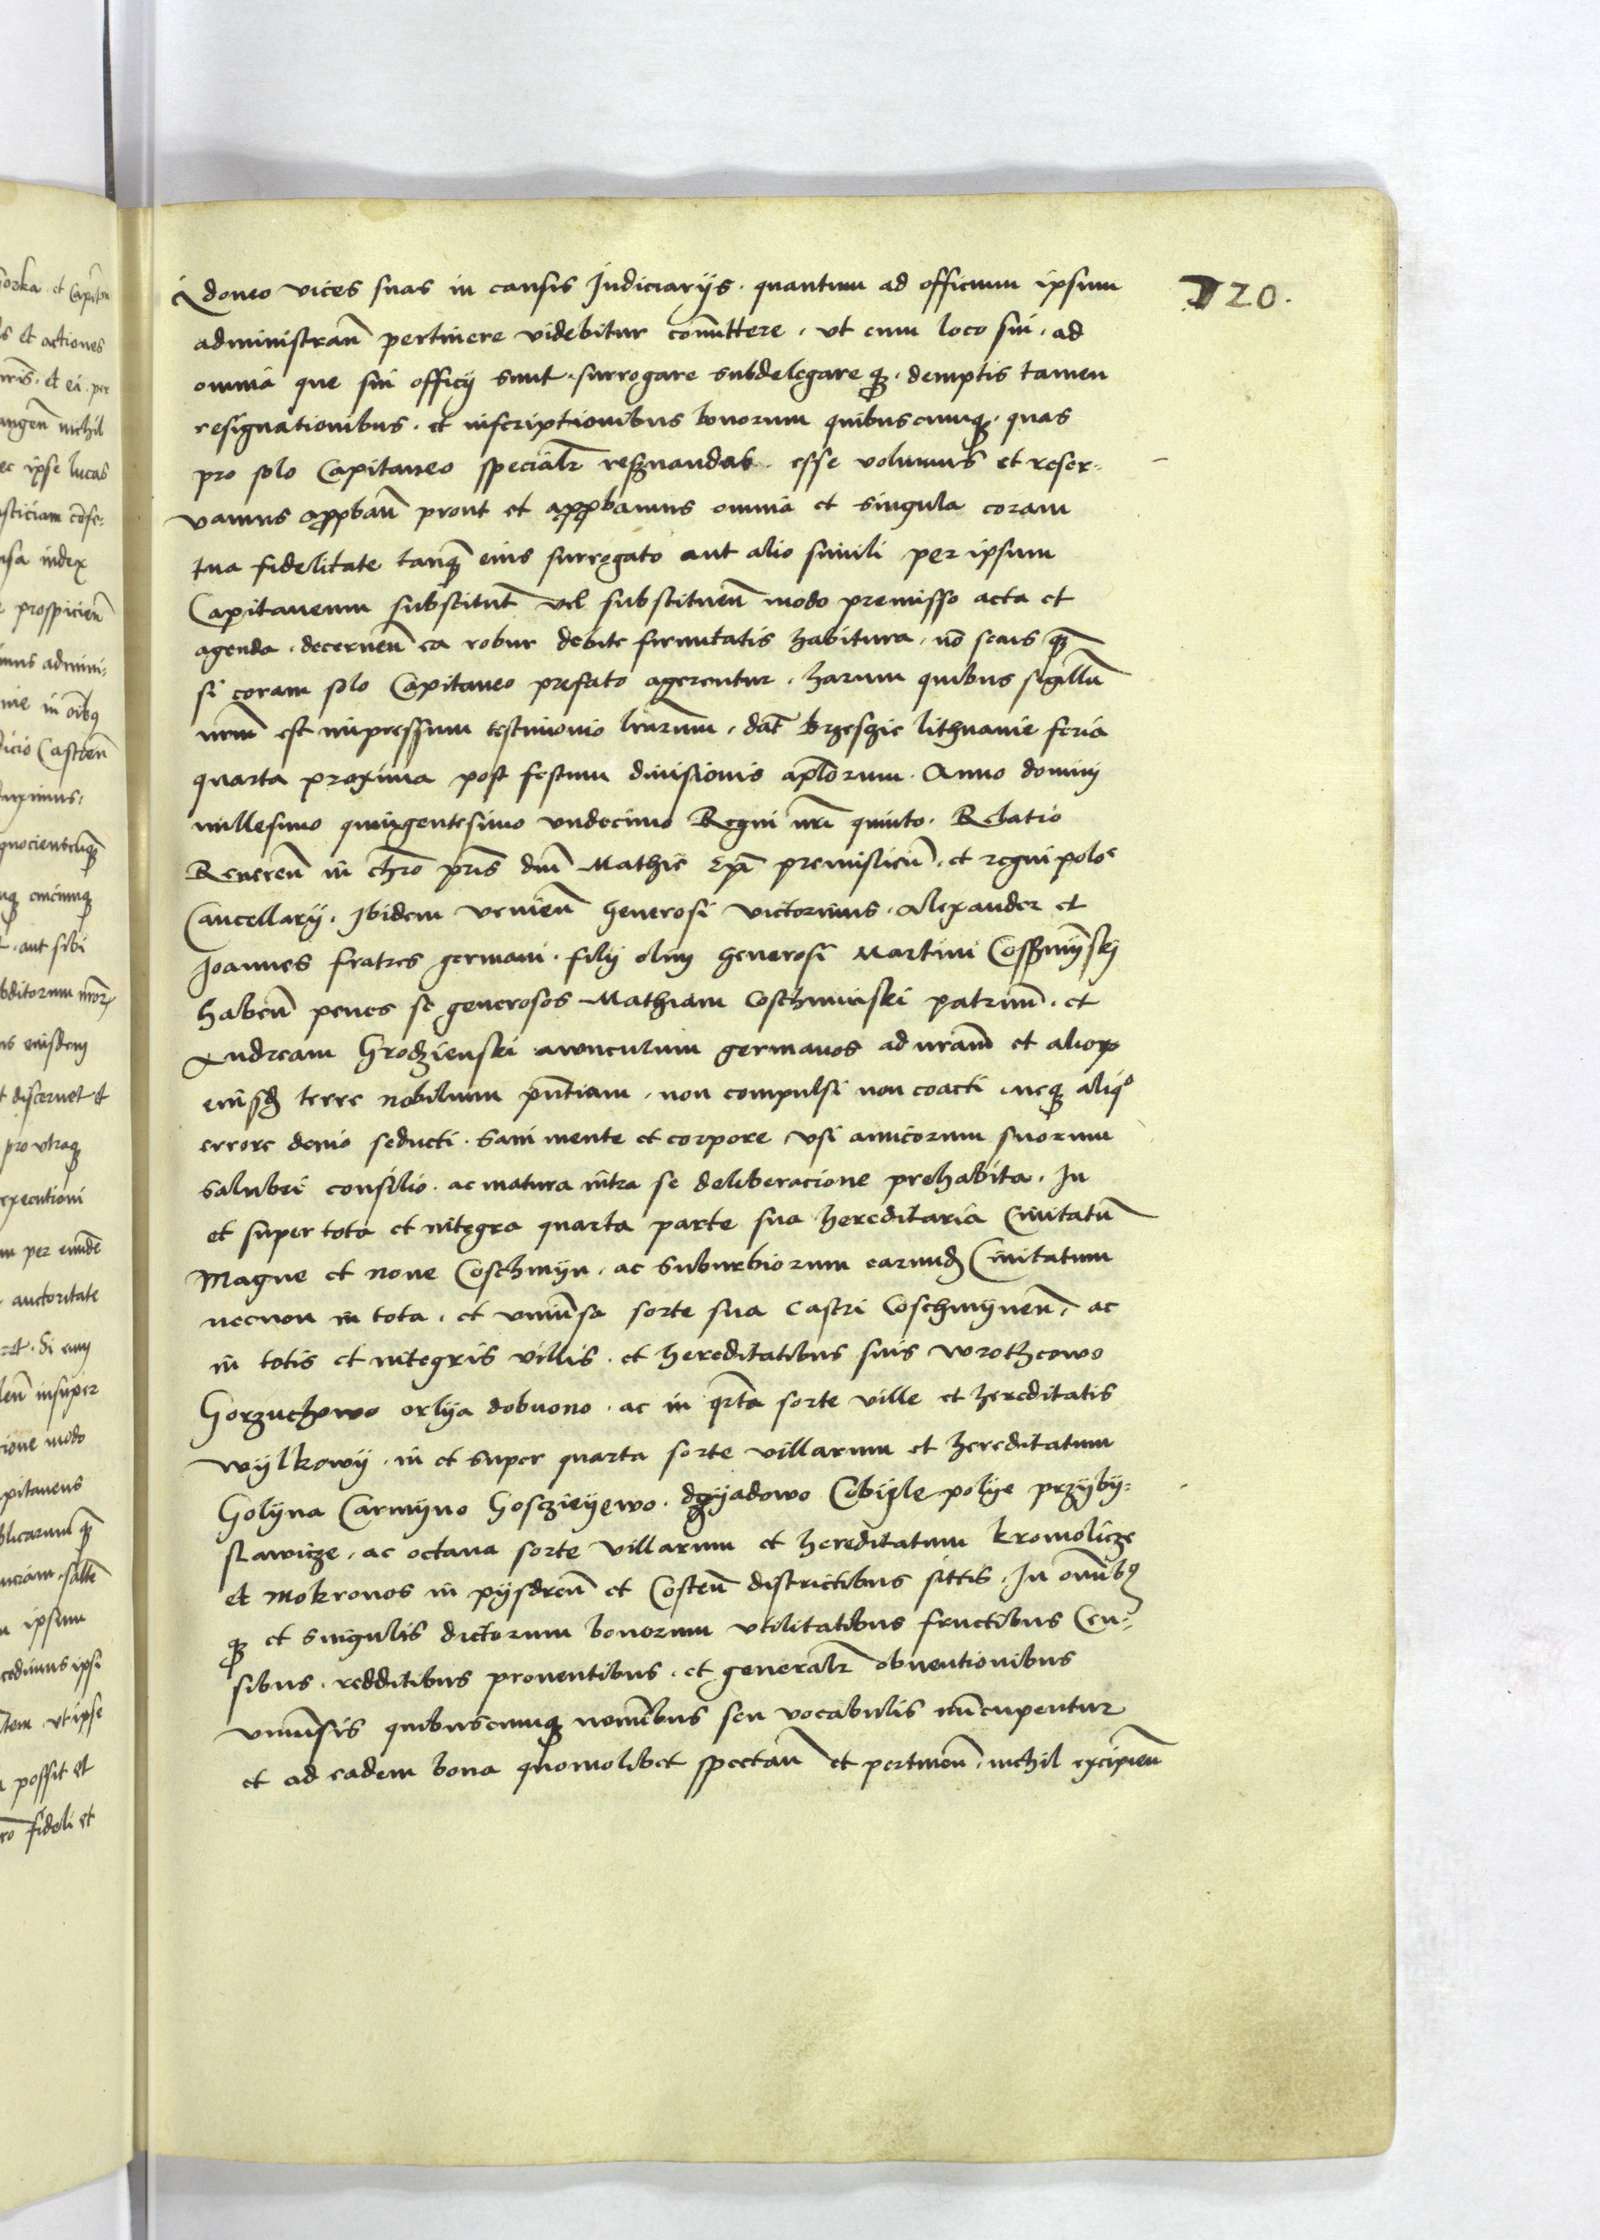 120.
Idoneo vices suas in causis Judiciarijs. quantum ad officium ipsum
administran̄ pertinere videbitur com̄ittere. vt eum loco sui. ad
omnia que sui officij sunt. surrogare subdelegare qꝫ. demptis tamen
resignationibus. et inscriptionibus bonorum quibuscumqꝫ. quas
pro solo Capitaneo specialr̄ resignandas. esse volumus et reser-
vamus appban̄ prout et appbamus omnia et singula coram
tua fidelitate tanqꝫ eius surrogato aut alio simili per ipsum
Capitaneum substitut̄ vel substituen̄ modo premisso acta et
agenda. decernen̄ ea robur debite firmitatis habitura. nō secus qꝫ
si coram solo Capitaneo prefato agerentur. harum quibus sigillū
nrm̄ est impressum testimonio lrārum. dat̄ brzeszie lithuanie feria
quarta proxima post festum divisionis aplōrum. Anno domini
millesimo quingentesimo vndecimo Regni nrī quinto. Relatio
Reveren̄ in chrō pris̄ dnī Mathie Epī premislien̄. et regni polo
Cancellarij. Ibidem venien̄ Generosi victorinus. Alexander et
Joannes fratres germani. filij olim Generosi Martini Coszmynsky
haben̄ penes se generosos Mathiam Coschminski patruū. et
Andream Grodzienski awunculum germanos ad nrām et alioꝝ
eiusdꝫ terre nobilium pn̄tiam. non compulsi non coacti neqꝫ aliqº
errore devio seducti. sani mente et corpore vsi amicorum suorum
salubri consilio. ac matura intra se deliberacione prehabita. In
et super tota et integra quarta parte sua hereditaria Civitatū
Magne et noue Coschmyn. ac suburbiorum earundꝫ Civitatum
necnon in tota. et vniūsa sorte sua castri Coschmynen̄. ac
in totis et integris villis. et hereditatibus suis wrothcowo
Gorzuchowo orlya dobuono. ac in qrta sorte ville et hereditatis
wylkowy. in et super quarta sorte villarum et hereditatum
Golyna Carmyno Gosczieyewo. dzyadowo Cobyle polye przyby-
slawicze. ac octaua sorte villarum et hereditatum kromolicze
et mokronos in pysdren̄ et Costen̄ districtibus sittis. In omībꝯ
qꝫ et singulis dictorum bonorum vtilitatibus fructibus Cen-
sibus. redditibus prouentibus. et generalr̄ obuentionibus
vniūsis quibuscumqꝫ nomībus seu vocabulis nūcupentur
et ad eadem bona quomolibet spectan̄ et pertinen̄. nichil excipien̄